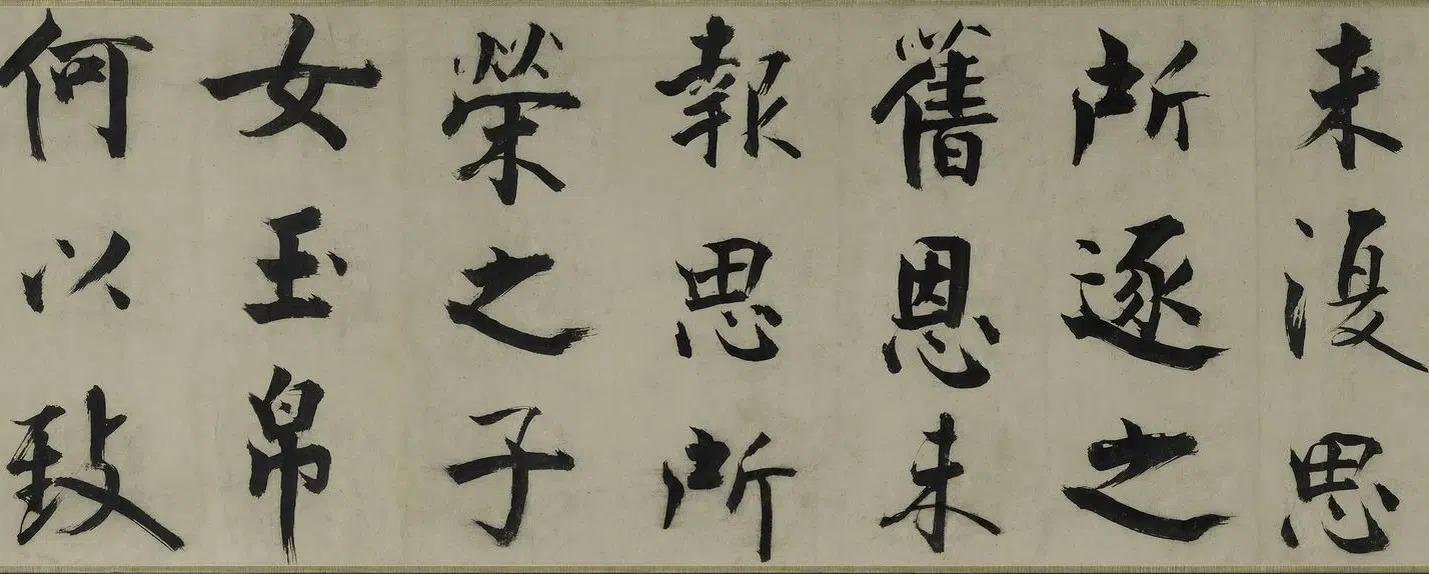 未復思
所逐之
舊恩未
報思所
榮之子
女玉帛
何以致